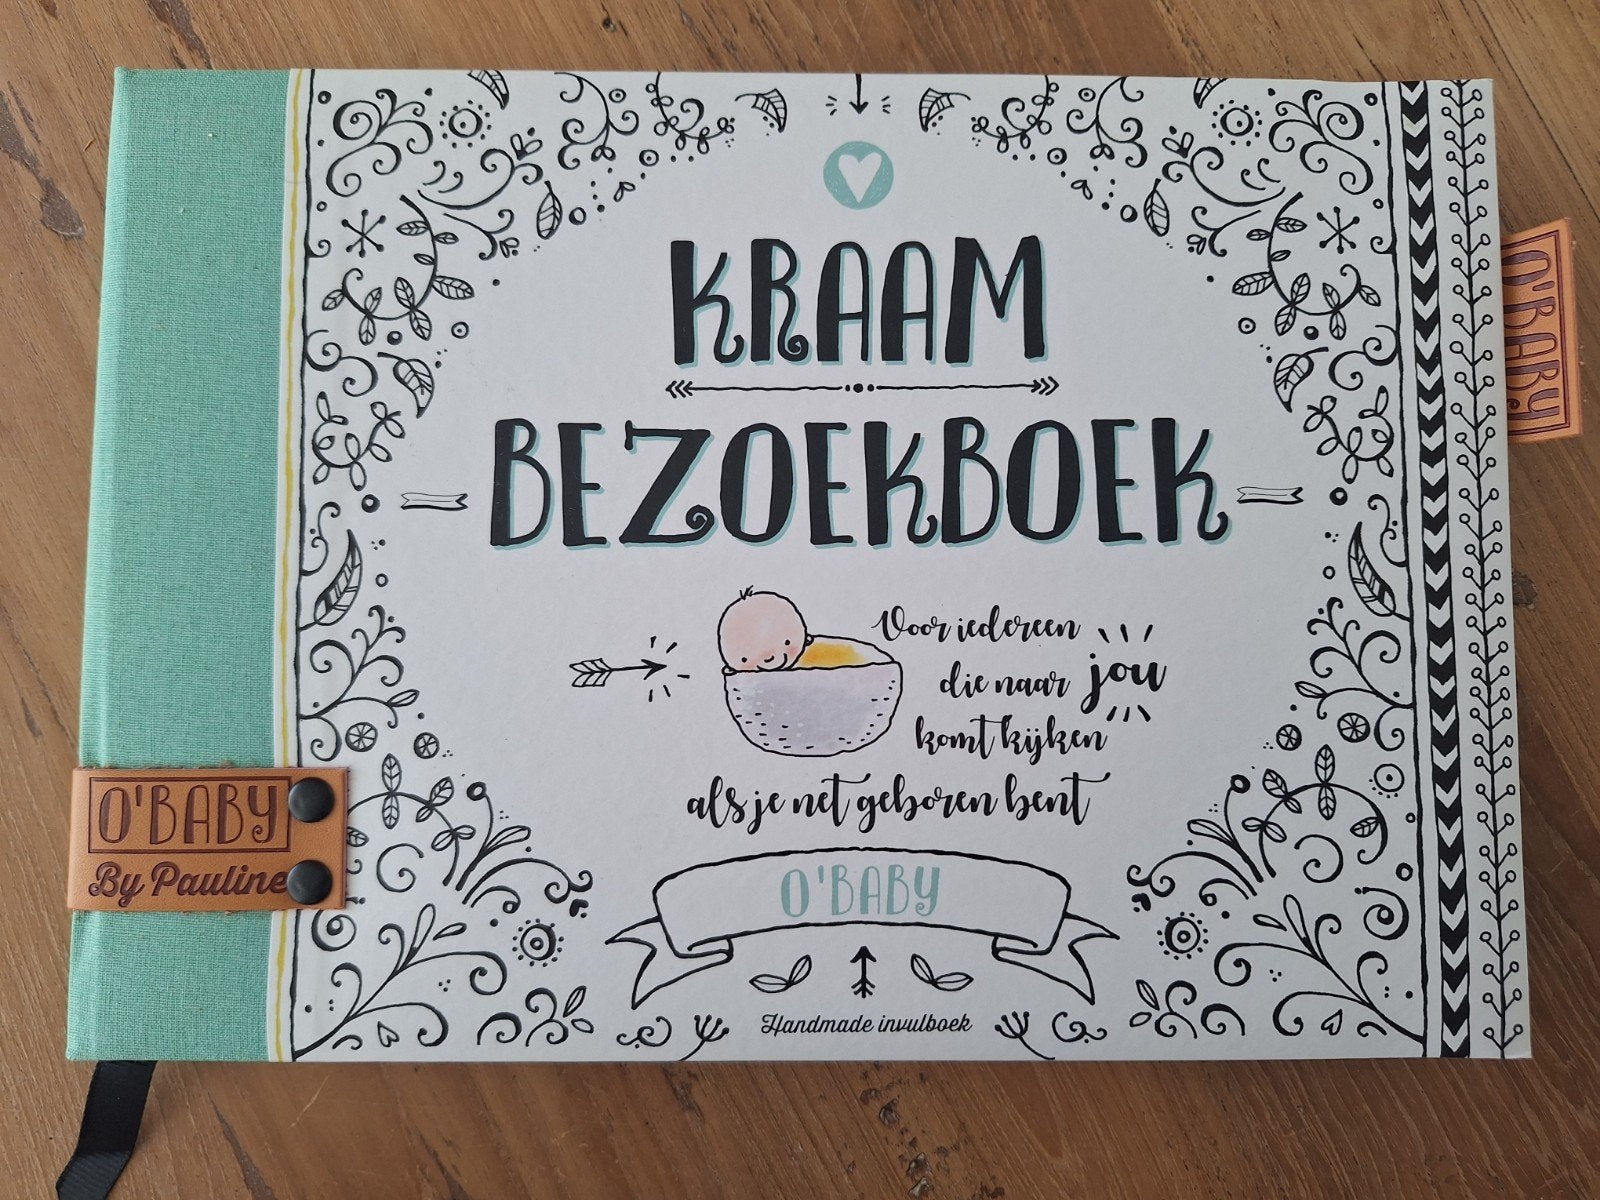 KRAAM
BEZOEKBOEK
Voor iedereen
die naar jou
komt kijken
als je net geboren bent
O'BABY
Handmade invulboek
O'BABY
By Pauline
O'BABY